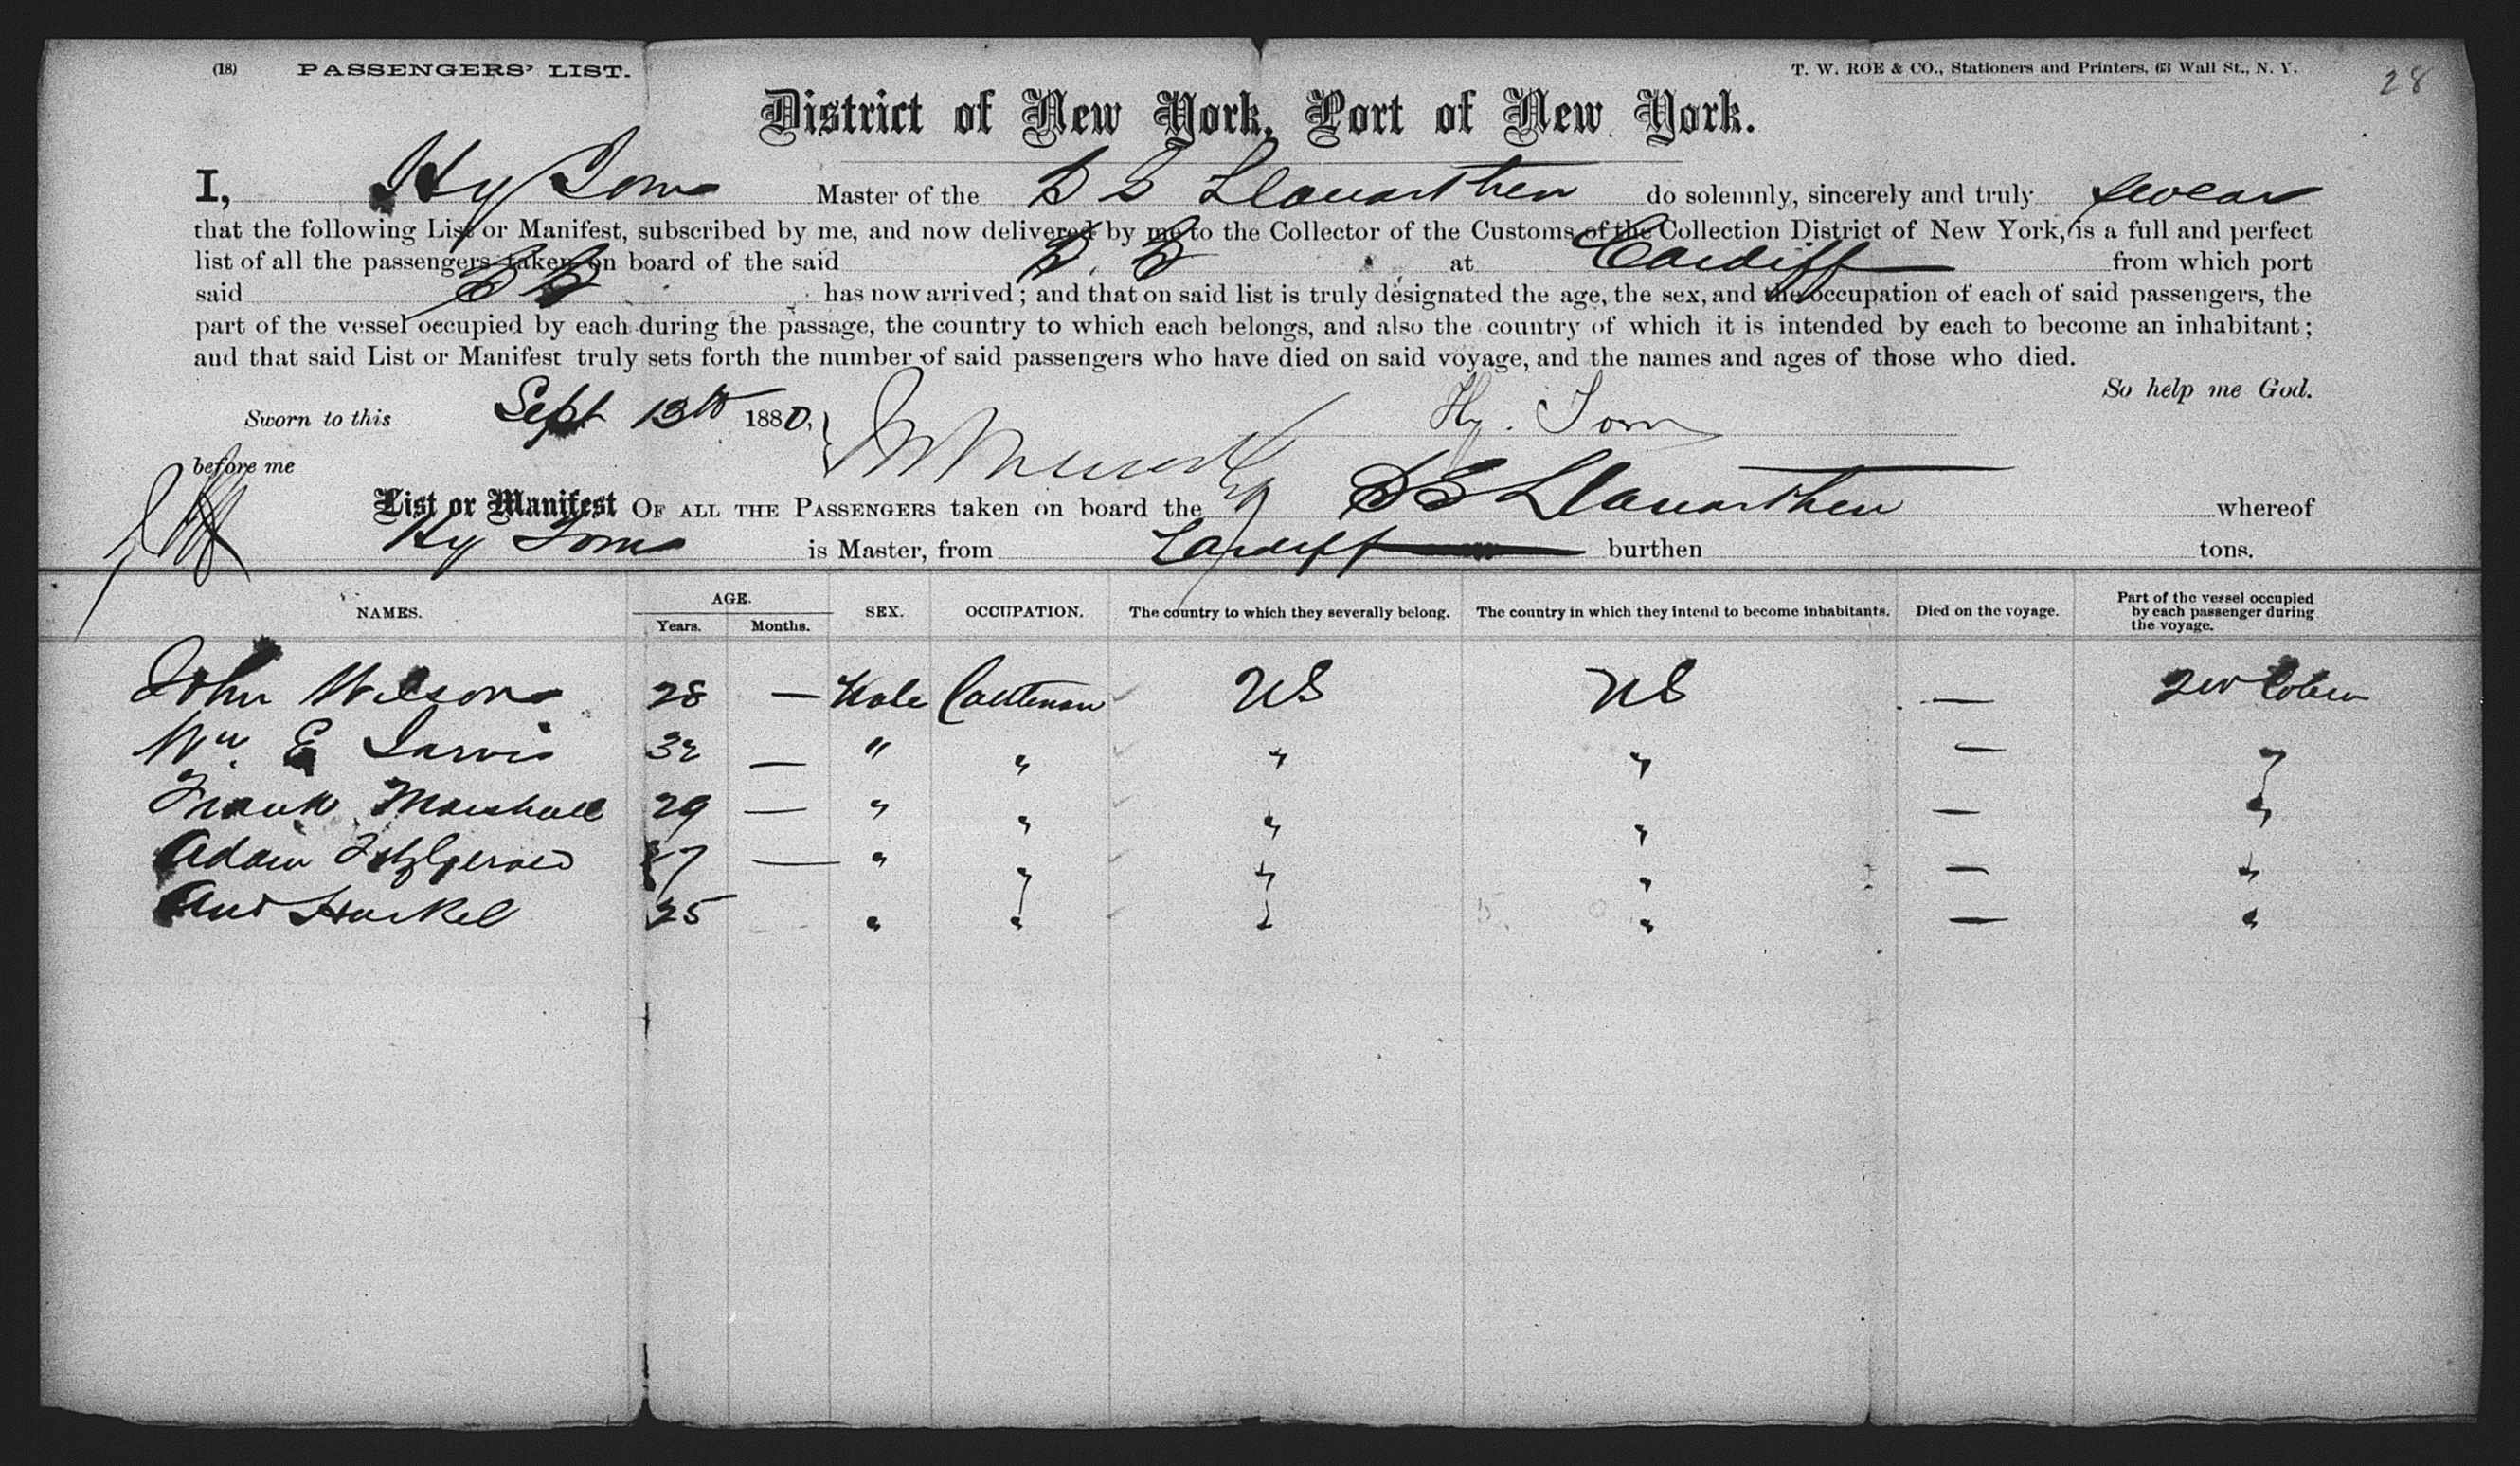 (18) PASSENGERS' LIST. T. W. ROE & CO., Stationers and Printers, 63 Wall St., N. Y. 28
District of New York, Port of New York.
I, Hy Tom Master of the S S Llanarthen do solemnly, sincerely and truly swear
that the following List or Manifest, subscribed by me, and now delivered by me to the Collector of the Customs of the Collection District of New York, is a full and perfect
list of all the passengers taken on board of the said S. S at Cardiff from which port
said S S has now arrived; and that on said list is truly designated the age, the sex, and the occupation of each of said passengers, the
part of the vessel occupied by each during the passage, the country to which each belongs, and also the country of which it is intended by each to become an inhabitant;
and that said List or Manifest truly sets forth the number of said passengers who have died on said voyage, and the names and ages of those who died.
So help me God.
Sworn to this Sept 13th 1880, Hy. Tom
before me
List or Manifest OF ALL THE PASSENGERS taken on board the S S Llanarthen whereof
Hy Tom is Master, from Cardiff burthen tons.
NAMES. AGE. Years. Months. SEX. OCCUPATION. The country to which they severally belong. The country in which they intend to become inhabitants. Died on the voyage. Part of the vessel occupied by each passenger during the voyage.
John Wilson 28 — Male Cattleman US US —
Wm E Jarvis 32 — " " " " — "
Frank Marshall 29 — " " " " — "
Adam Fitzgerald 27 — " " " " — "
And Harkel 25 " " " " — "